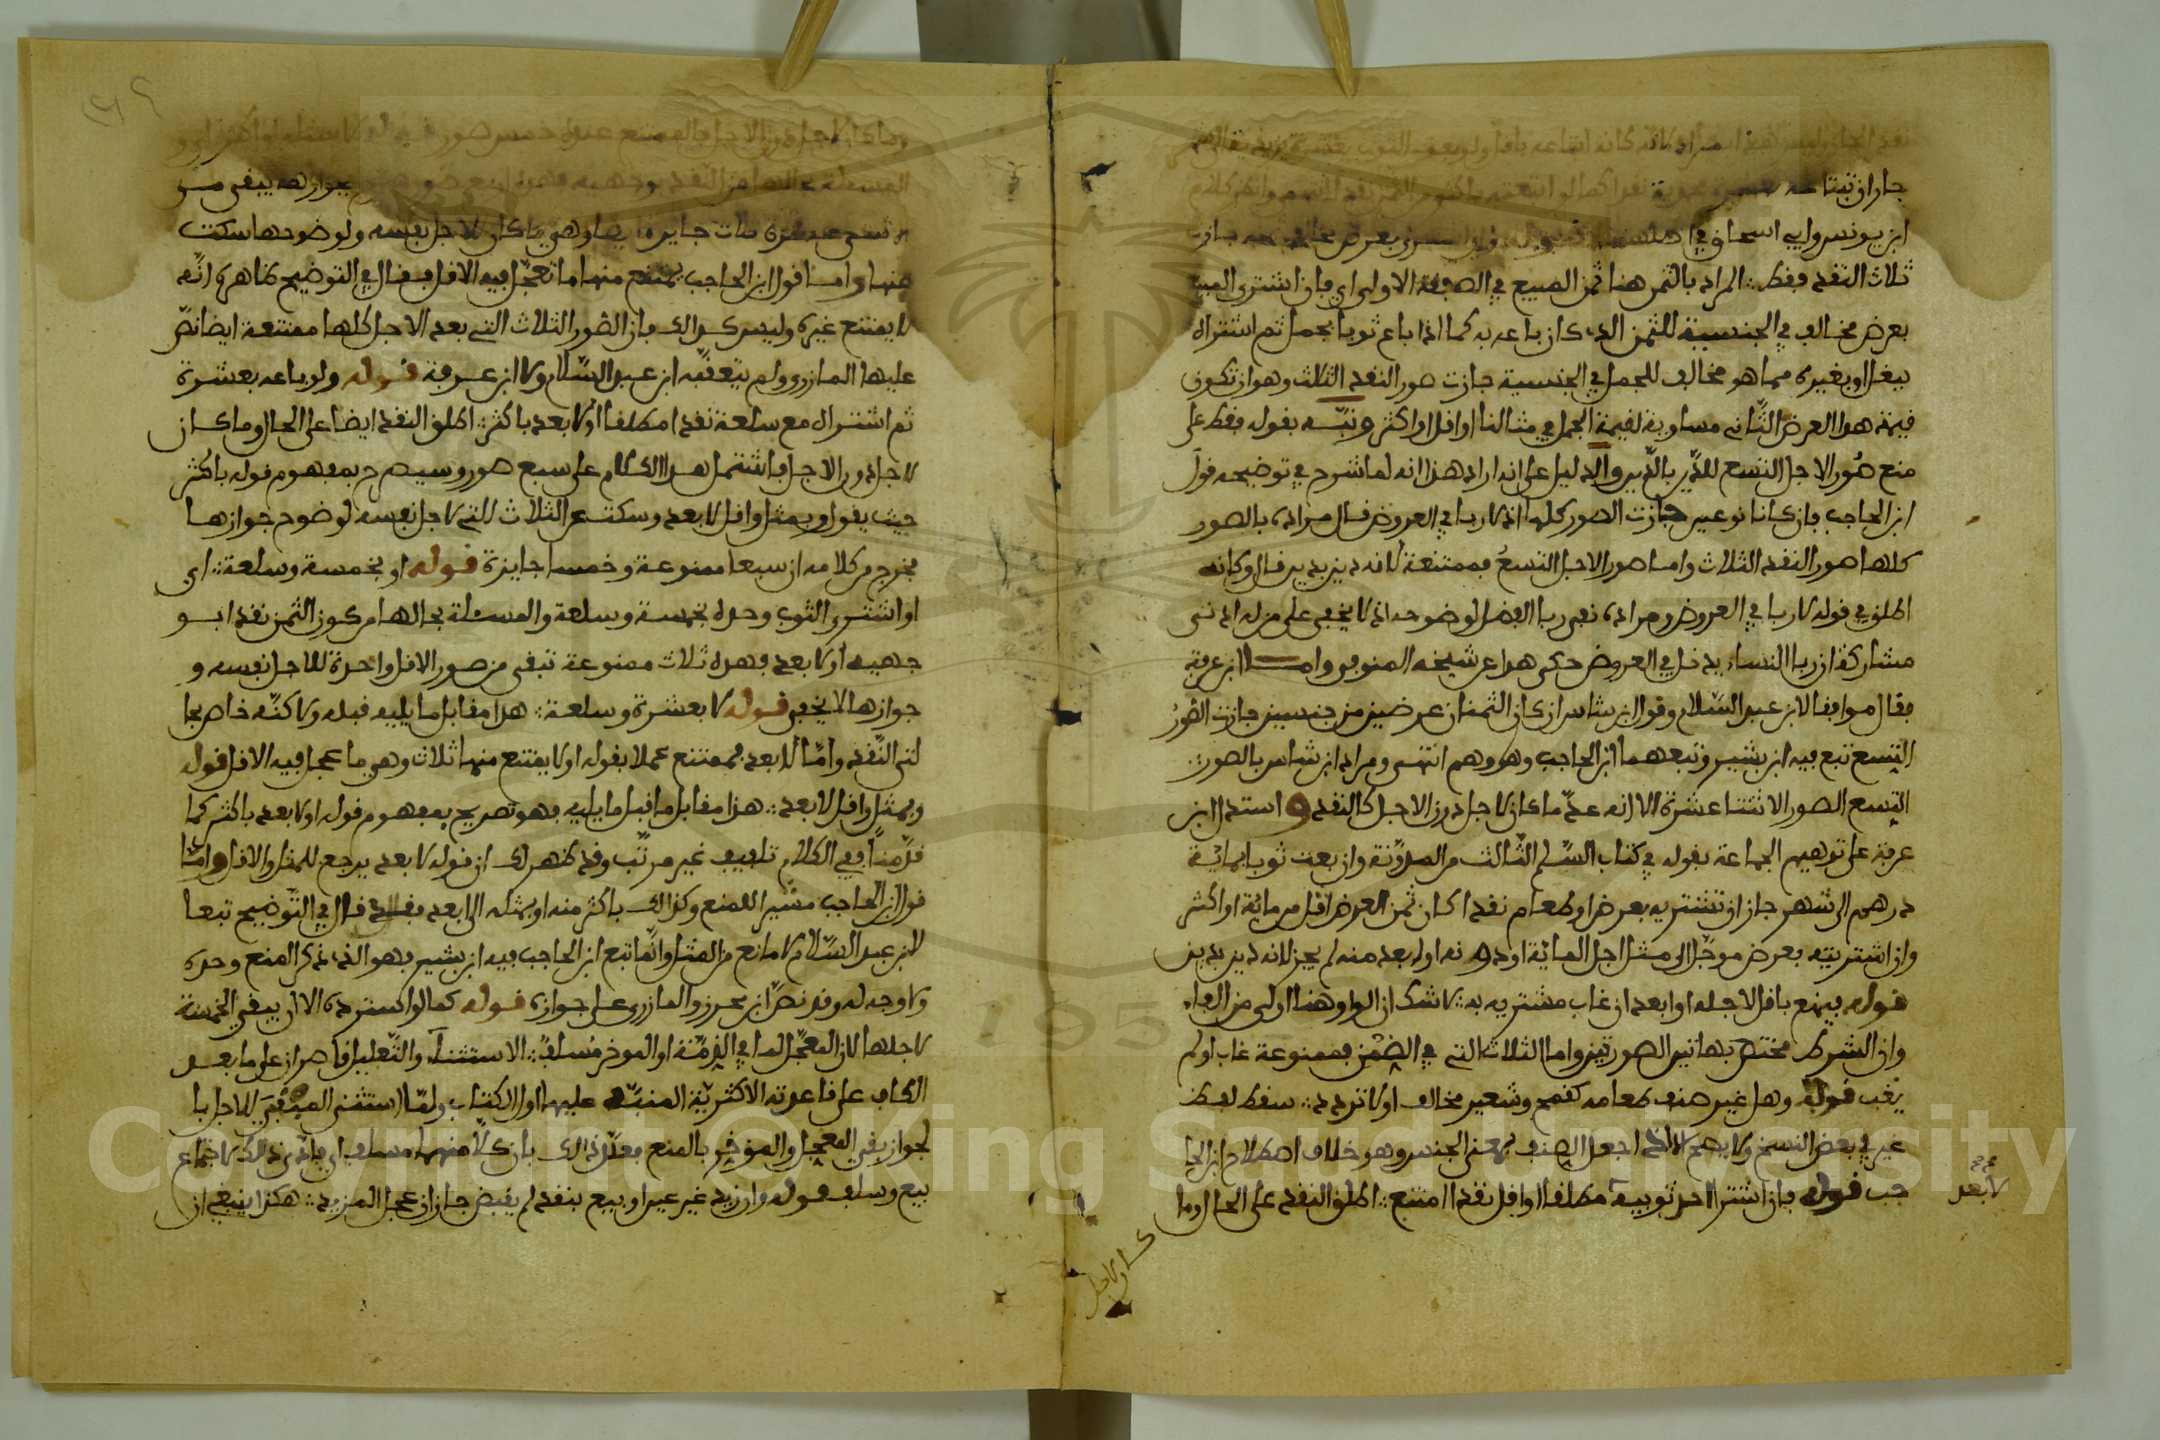 جاز ان تبتاعه
ابن يونس وابي اسحاق في
ثلاث النقد فقط ∴ المراد بالثمن هنا ثمن المبيع في الصفقة الاولى اي فان اشترى المبيع
بعرض مخالف في الجنسية للثمن الذي كان باعه به كما اذا باع ثوبا بجمل ثم اشتراه
ببغل او بغيره مما هو مخالف للجمل في الجنسية جازت صور النقد الثلاث وهو ان تكون
قيمة هذا العرض الثاني مساوية لقيمة الجمل في مثالنا او اقل او اكثر ونبّه بقوله فقط على
منع صُور الاجل التسع للدّين بالدّين والدليل على انه اراد هذا انه لما شرح في توضيحه قول
ابن الحاجب فان كانا نوعين جازت الصور كلها اذ لا ربا في العروض قال مراده بالصور
كلها صور النقد الثلاث واما صور الاجل التسعُ فممتنعة لانه دين بدين قال وكانه
اطلق في قوله لا ربا في العروض ومراده نفي ربا الفضل لوضوحه اذ لا يخفى على من له ادنى
مشاركة ان ربا النساء يدخل في العروض حكى هذا عن شيخه المنوفي واما ابن عرفة
فقال موافقا لابن عبد السّلام وقول ابن شاس ان كان الثمنان عرضين من جنسين جازت الصُّورُ
التسع تبع فيه ابن بشير وتبعهما ابن الحاجب وهو وهم انتهى ومراد ابن شاس بالصور
التسع الصور الاثنتا عشرة الا انه عدّ ما كان لاجل دون الاجل كالنقد واستدل ابن
عرفة على توهيم الجماعة بقوله في كتاب السّلم الثالث من المدوّنة وان بعت ثوبا بمائة
درهم الى شهر جاز ان تشتريه بعرض او طعام نقدا كان ثمن العرض اقل من مائة او اكثر
وان اشتريته بعرض موجّل الى مثل اجل المائة او دونه او ابعد منه لم يجز لانه دين بدين
قوله بيمنع باقل لاجله او ابعد ان غاب مشتريه به ∴ لا شك ان الواو هنا اولى من الفاء
وان الشرط مختصّ بهاتين الصورتين واما الثلاث التي في الضمْن فممنوعة غاب او لم
يغب قوله وهل غير صنف طعامه كقمح وشعير مخالف او لا تردد ∴ سقط لفظ
غير في بعض النسخ ولا يصح الا اذا جعل الصنف بمعنى الجنس وهو خلاف اصطلاح ابن الحا
جب قوله فان اشترى احد ثوبيه مطلقا او اقل نقدا امتنع ∴ اطلق النقد على الحال وما
لابعد
كان لاجل
منها واما قول ابن الحاجب يمتنع منها ما تعجّل فيه الاقل فقال في التوضيح ظاهره انّه
لا يمتنع غيره وليس كذلك فان الصّور الثلاث التي بعد الاجل كلها ممتنعة ايضا نصّ
عليها المازري ولم يتعقّبه ابن عبد السّلام ولا ابن عرفة قوله ولو باعه بعشرة
ثم اشتراه مع سلعة نقدا مطلقا او لابعد باكثر ∴ اطلق النقد ايضا على الحال وما كان
لاجل دون الاجل فاشتمل هذا الكلام على سبع صور وسيصرح بمفهوم قوله باكثر
حيث يقول وبمثل واقل لابعد وسكت عن الثلاث للتي لاجل نفسه لوضوح جوازها
فخرج من كلامه ان سبعا ممنوعة وخمسا جايزة قوله او بخمسة وسلعة ∴ اي
او اشترى الثوب وحده بخمسة وسلعة والمسئلة بحالها من كون الثمن نقدا بو
جهيه او لابعد فهذه ثلاث ممنوعة تبقى من صور الاقل واحدة للاجل نفسه و
جوازها لا يخفى قوله لا بعشرة وسلعة ∴ هذا مقابل ما يليه قبله ولاكنّه خاص بحا
لتي النّقد وامّا لابعد فممتنع عملا بقوله او لا يمتنع منها ثلاث وهي ما عجل فيه الاقل قوله
وبمثل واقل لابعد ∴ هذا مقابل ما قبل ما يليه فهو تصريح بمفهوم قوله او لابعد باكثر كما
قدّمنا ففي الكلام تلفيف غير مرتّب وقد ظهر لك ان قوله لابعد يرجع للمثل والاقل وامّا
قول ابن الحاجب مشيرا للمنع وكذلك باكثر منه او بمثله الى ابعد فقد قال في التّوضيح تبعا
لابن عبد السّلام لا مانع من المثل وانّما تبع ابن الحاجب فيه ابن بشير فهو الذي ذكر المنع وحده
ولا وجه له وقد نصّ ابن محرز والمازري على جوازه قوله كما لو استرده الا ان يبقي الخمسة
لاجلها لان المعجّل لما في الذمّة او الموخر مُسلفٌ ∴ الاستثناء والتّعليل قاصران على ما بعد
الكاف على قاعدته الاكثريّة المنبّه عليها اول الكتاب ولمّا استثنى المبْقيَ للاجل با
لجواز بقي المعجل والموخر بالمنع فعلّل ذالك بان كلّا منهما مسلف اي فادّى ذالك لاجتماع
بيع وسلف قوله وان زيد غير عين او بيع بنقد لم يقبض جاز ان عجل المزيد ∴ هكذا ينبغي ان